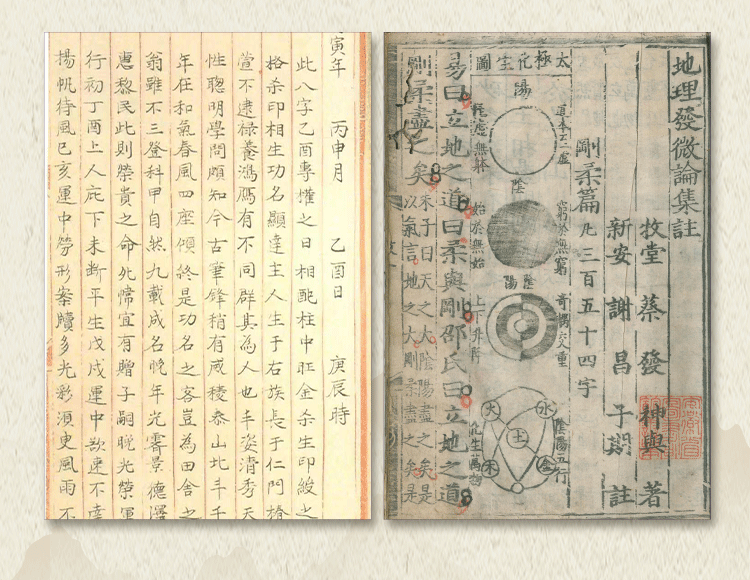 地理發微論集註
牧堂蔡發神與著
新安謝昌子期註
剛柔篇凡三百五十四字
太極化生圖
陽
陰
窮於無窮
始於無始
陰陽
上下升
水
火
土
金
木
陰陽五行
化生萬物
易曰立地之道曰柔與剛邵氏曰立地之道
剛柔盡之矣
朱子曰天之大陰陽盡之矣是
以氣言地之大剛柔盡之矣是
寅年 丙申月 乙酉日 庚辰時
此八字乙酉專權之日相配柱中旺金杀生印綬之
格杀印相生功名顯達主人生于右族長于仁門椿
萱不逮祿養鴻鴈有不同群其為人也丰姿清秀天
性聰明學問頗知今古筆鋒稍有威稜泰山北斗千
年任和氣春風四座傾終是功名之客豈為田舍之
翁雖不三登科甲自然九載成名晚年光霽景德澤
惠黎民此則榮貴之命也幃宜有贈子嗣晚光榮軍
行初丁酉上人庇下未斷平生戊戌運中欲速不達
揚帆待風己亥運中勞形案牘多光彩須更風雨不